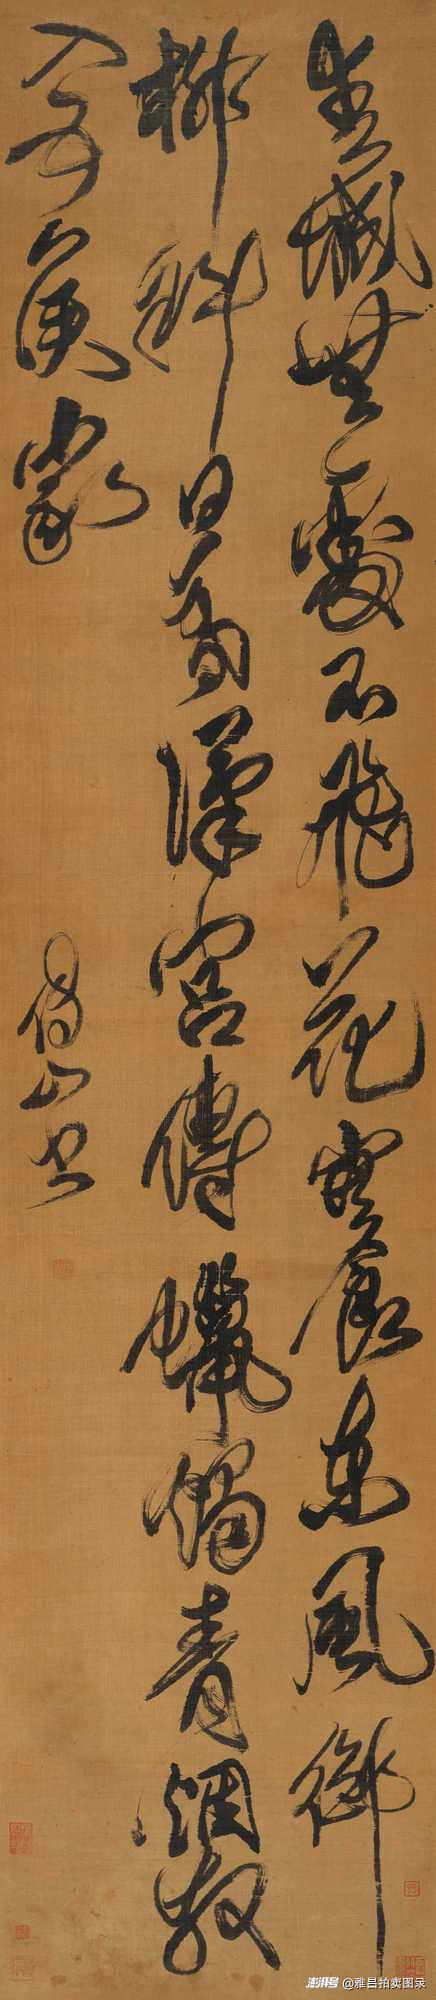 春城無處不飛花寒食東風御
柳斜日暮漢宮傳蠟燭青烟散
入五侯家
傅山書
澎湃号 @雅昌拍卖图录